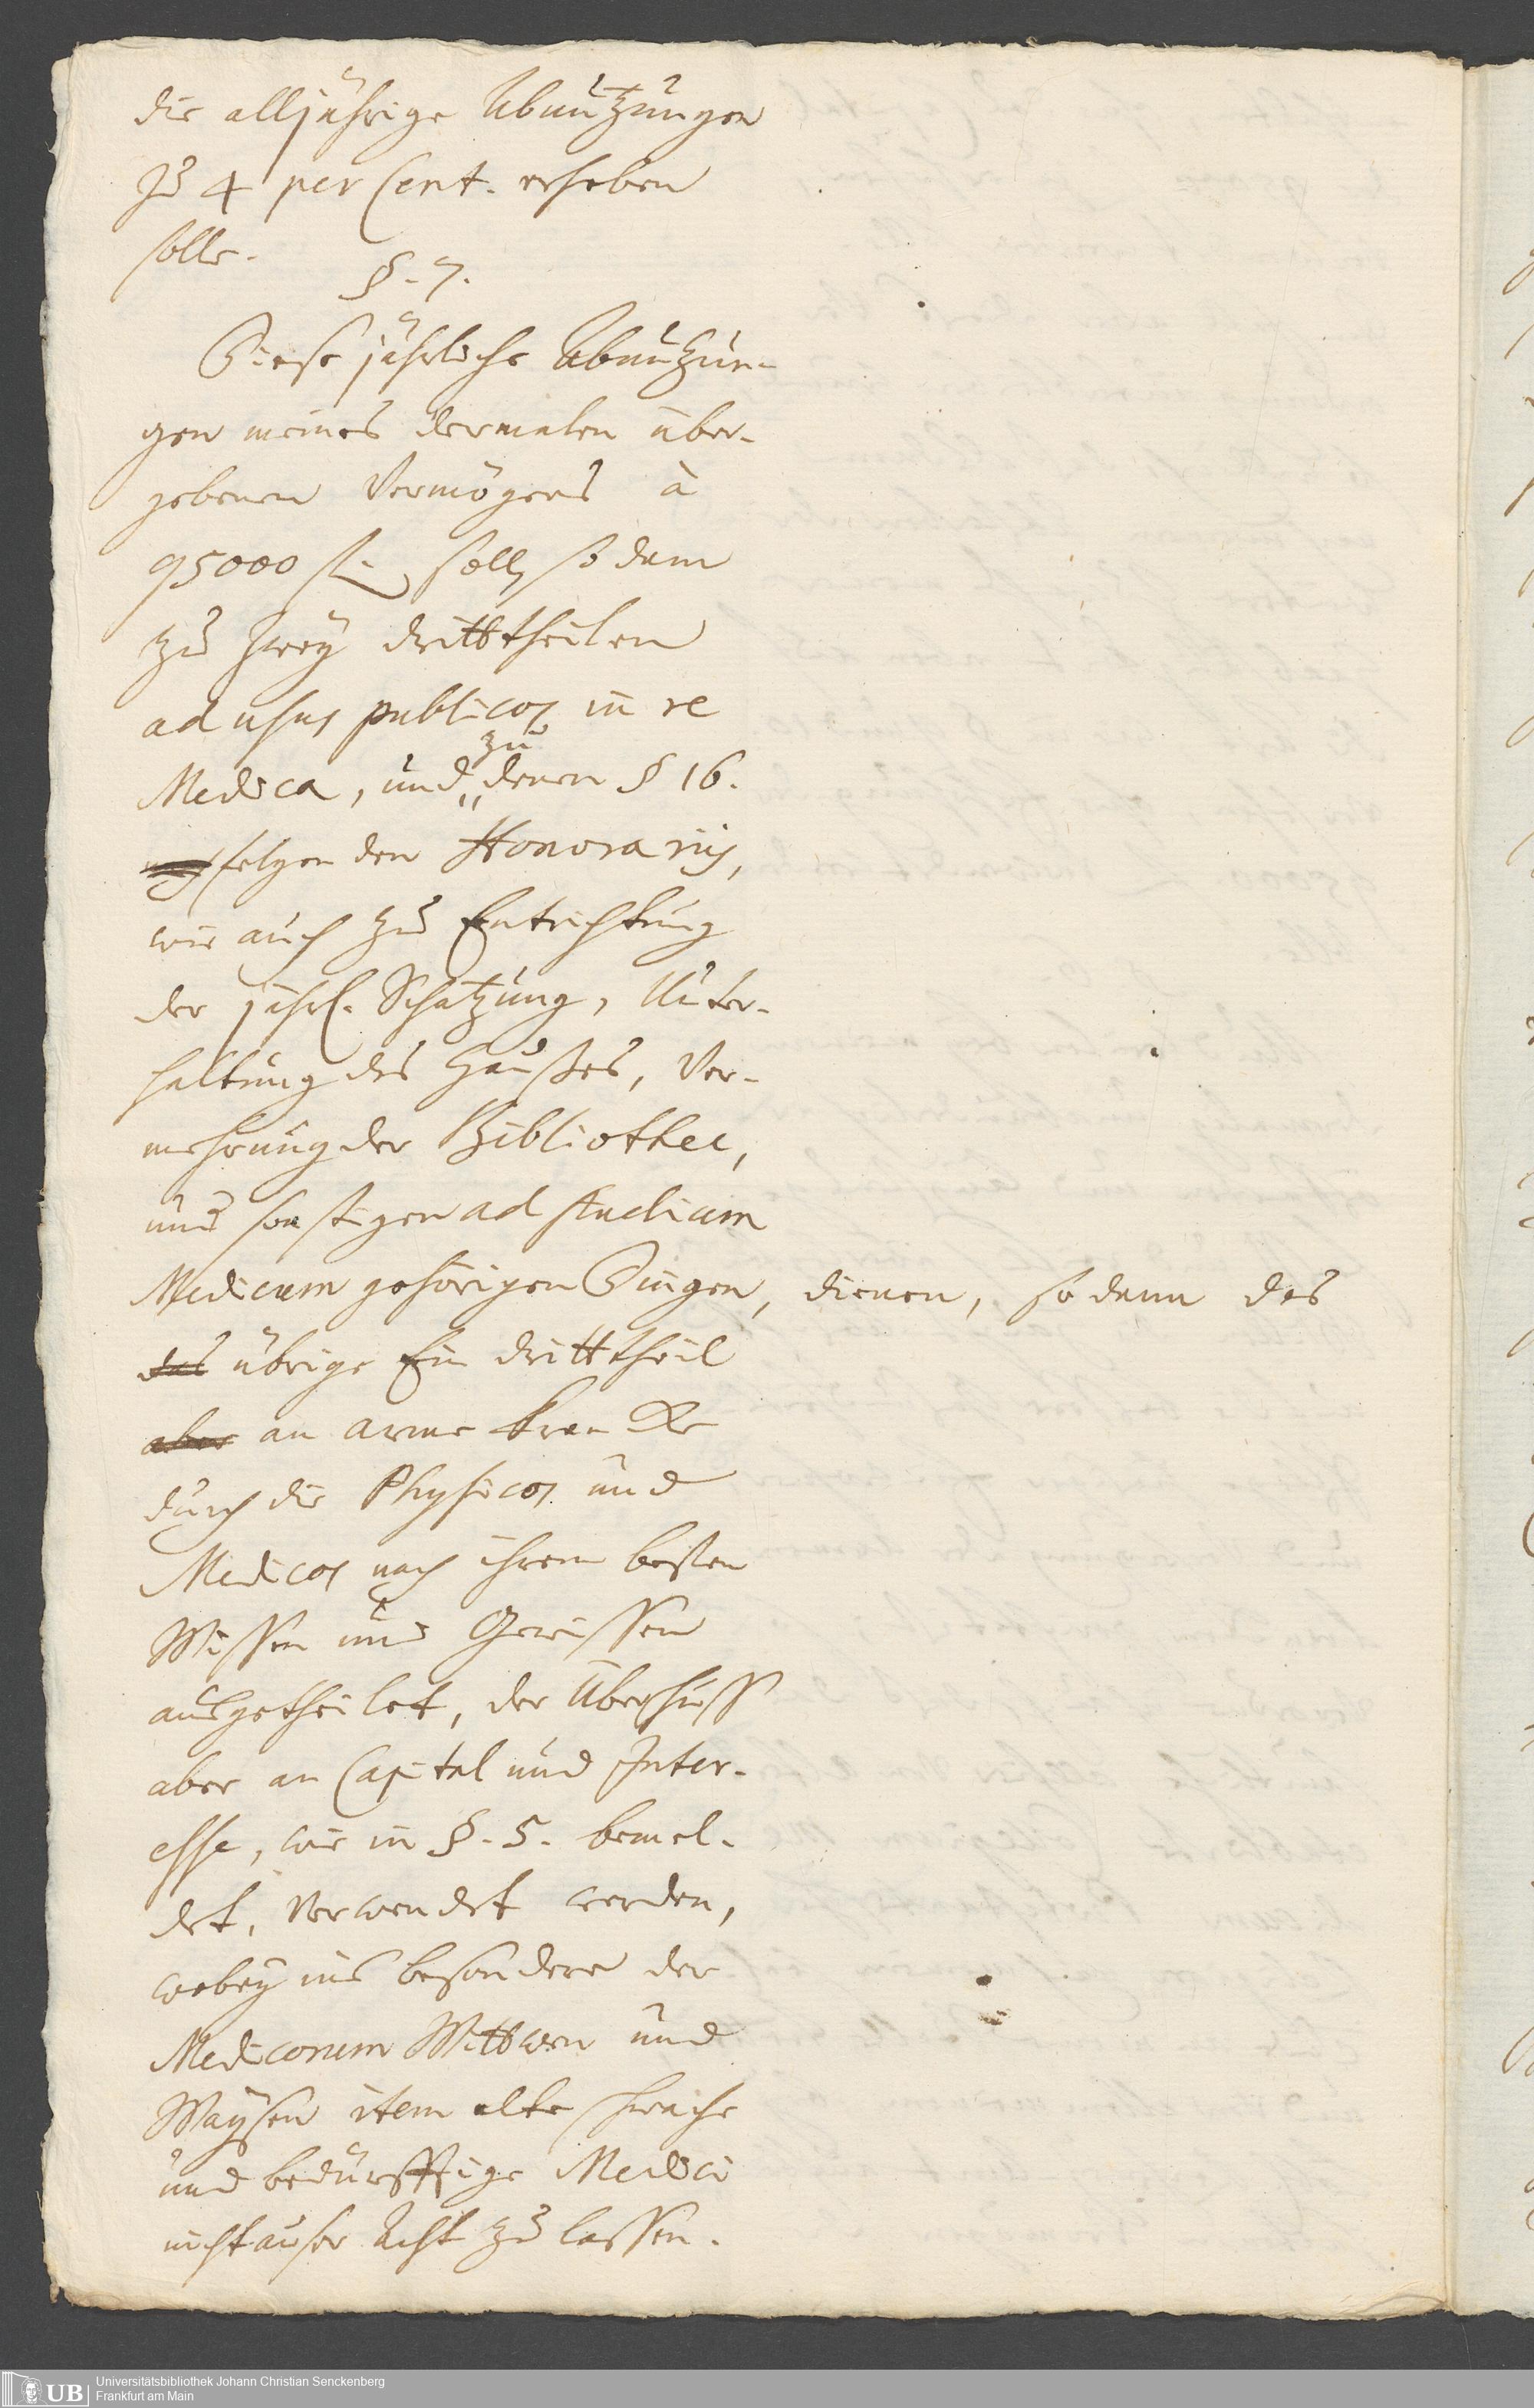 die alljährige Abnutzungen
zu 4 per Cent. erheben
solle.
§. 7.
Diese jährliche Abnutzun-
gen meines dermalen über-
gebenen Vermögens à
95000 fl. soll, sodann
zu zwey dritttheilen
ad usus publicos in re
Medica, und zu denen § 16.
folgenden Honorariis,
wie auch zu Entrichtung
der jährl. Schatzung, Unter-
haltung des Hausses, Ver-
mehrung der Bibliothec,
und sonstigen ad studium
Medicum gehörigen Dingen, dienen, sodann das
das übrige Ein dritttheil
aber an arme Krancke
durch die Physicos und
Medicos nach ihrem besten
Wissen und Gewissen
ausgetheilet, der Überschuss
aber an Capital und Inter-
esse, wie in §. 5. bemel-
det, verwendet werden,
wobey ins besondere der
Medicorum Wittwen und
Waysen item alte schwache
und bedürfftige Medici
nicht auser Acht zu lassen.
UB
Universitätsbibliothek Johann Christian Senckenberg
Frankfurt am Main